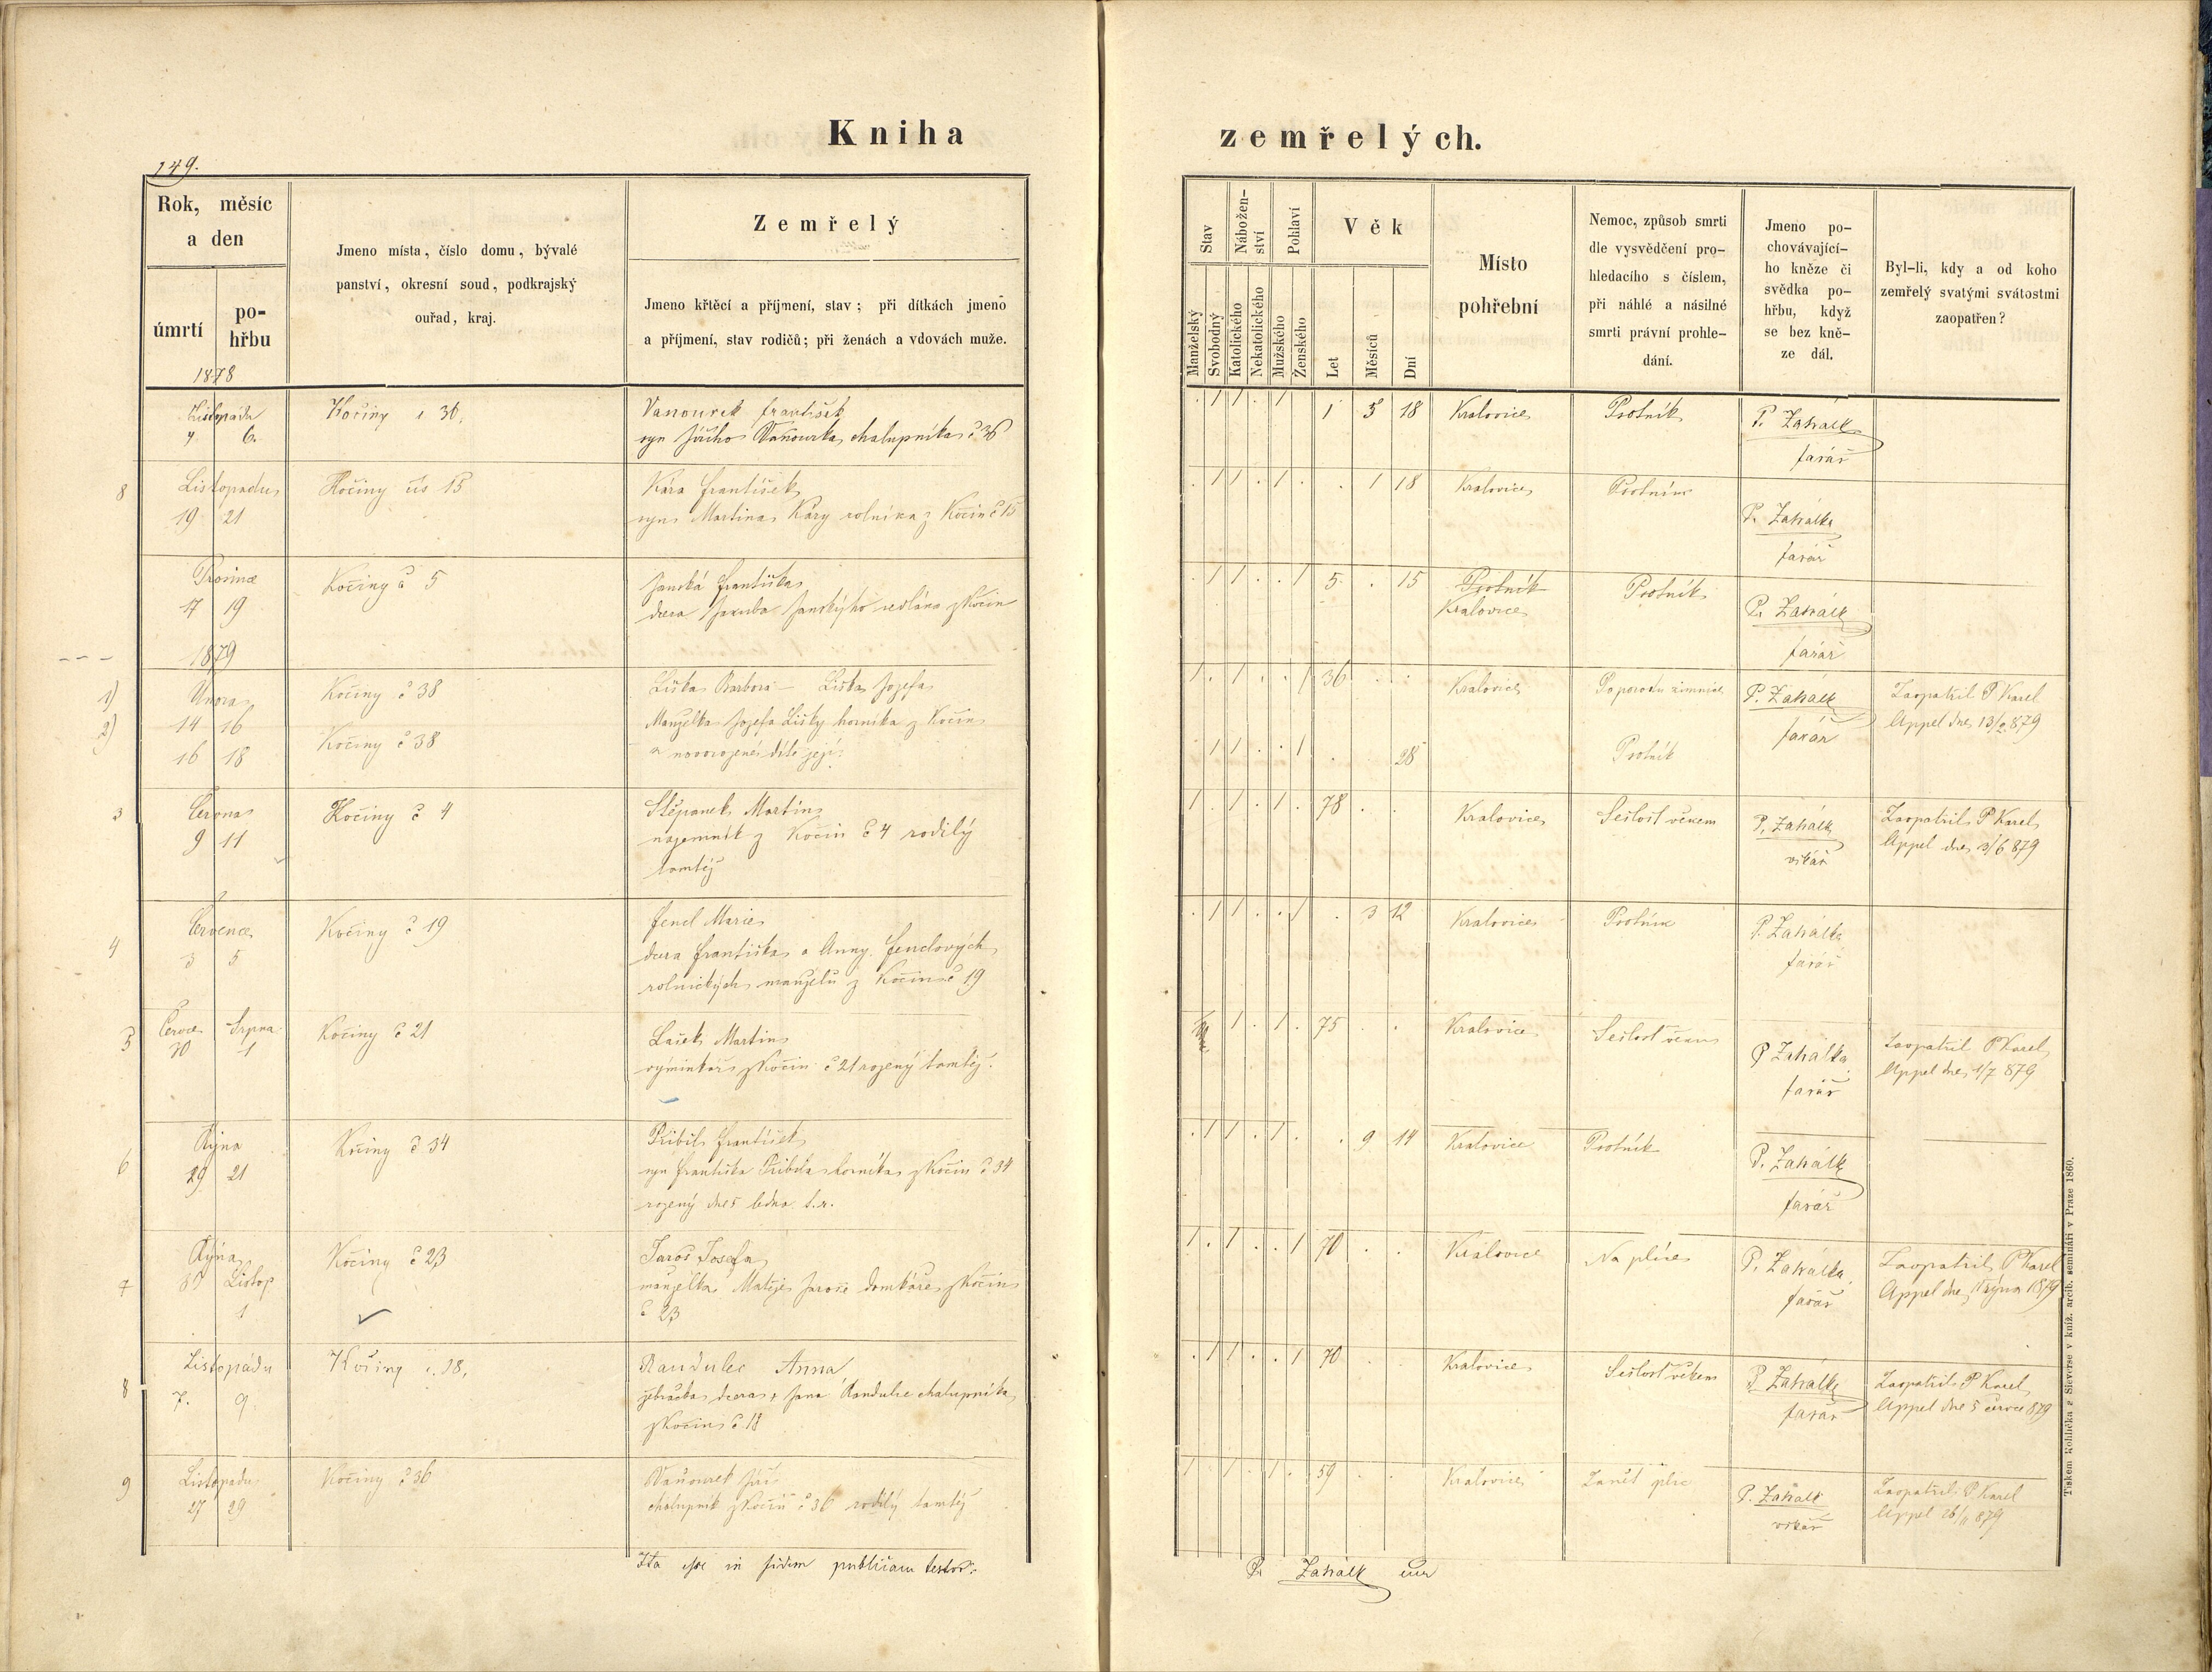 Kniha zemřelých.
149.
Rok, měsíc a den
úmrtí
pohřbu
1878
Jmeno místa, číslo domu, bývalé
panství, okresní soud, podkrajský
ouřad, kraj.
Zemřelý
Jmeno křtěcí a příjmení, stav; při dítkách jmeno
a příjmení, stav rodičů; při ženách a vdovách muže.
Stav
Manželský
Svobodný
Náboženství
Katolického
Nekatolického
Pohlaví
Mužského
Ženského
Věk
Let
Měsíců
Dní
Místo
pohřební
Nemoc, způsob smrti
dle vysvědčení pro-
hledacího s číslem,
při náhlé a násilné
smrti právní prohle-
dání.
Jmeno po-
chovávající-
ho kněze či
svědka po-
hřbu, když
se bez kně-
ze dál.
Byl-li, kdy a od koho
zemřelý svatými svátostmi
zaopatřen?
Listopadu
4 6.
Kočiny č 36.
Vanourek František
syn Jiřího Vanourka, chalupníka č 36
1 5 18
Kralovice
Psotník
P. Zahálk
farář
8
Listopadu
19 21
Kočiny čís 15
Kára František
syn Martina Káry rolníka z Kočin č 15
1 18
Kralovice
Psotník
P. Zahálka
farář
Prosince
17 19
Kočiny č 5
Janská Františka
dcera Jakuba Janskýho sedláka z Kočin
5 . 15
Psotník
Kralovice
Psotník
P. Zahálk
farář
1879
1)
Unora
14 16
Kočiny č 38
Liška Barbora — Liška Jozefa
Manželka Jozefa Lišky horníka z Kočin
36
Kralovice
Po porodu zimnice
P. Zahálk
farář
Zaopatřil P Karel
Appel dne 13/2 879
2)
16 18
Kočiny č 38
a novorozené dítě její
28
Psotník
3
Června
9 11
Kočiny č 4
Štěpanek Martin
nájemník z Kočin č 4 rodilý
tamtéž
78
Kralovice
Sešlost věkem
P. Zahálk
vikář
Zaopatřil P Karel
Appel dne 3/6 879
4
Července
3 5
Kočiny č 19
Fencl Marie
dcera Františka a Anny Fenclových
rolnických manželů z Kočin č 19
3 12
Kralovice
Psotník
P. Zahálka
farář
5
Červce Srpna
30 1
Kočiny č 21
Lašek Martin
výminkář z Kočin č 21 rozený tamtéž.
75
Kralovice
Sešlost věkem
P Zahálka
farář
Zaopatřil P Karel
Appel dne 1/7 879
6
Října
29 21
Kočiny č 34
Přibil František
syn Františka Přibila horníka z Kočin č 34
rozený dne 5 ledna t.r.
9 14
Kralovice
Psotník
P. Zahálk
farář
7
Října
31 Listop
1
Kočiny č 23
Jaroš Josefa
manželka Matěje Jaroše domkáře z Kočin
č 23
70
Kralovice
Na plíce
P. Zahálka
farář
Zaopatřil P Karel
Appel dne října 1879
8
Listopadu
7. 9.
Kočiny č. 18.
Randulec Anna
žebračka dcera + Jana Randulce chalupníka
z Kočin č 18
70
Kralovice
Sešlost věkem
P Zahálk
farář
Zaopatřil P Karel
Appel dne 5 června 879
9
Listopadu
27 29
Kočiny č 36
Vanourek Jiří
chalupník z Kočin č 36 rodilý tamtéž
59
Kralovice
Zánět plic
P. Zahálk
vikář
Zaopatřil P Karel
Appel 26/11 879
Ita esse in fidem publicam testor.
P. Zahálk
Tiskem Rohlíčka a Sieverse v kníž. arcib. semináři v Praze 1860.